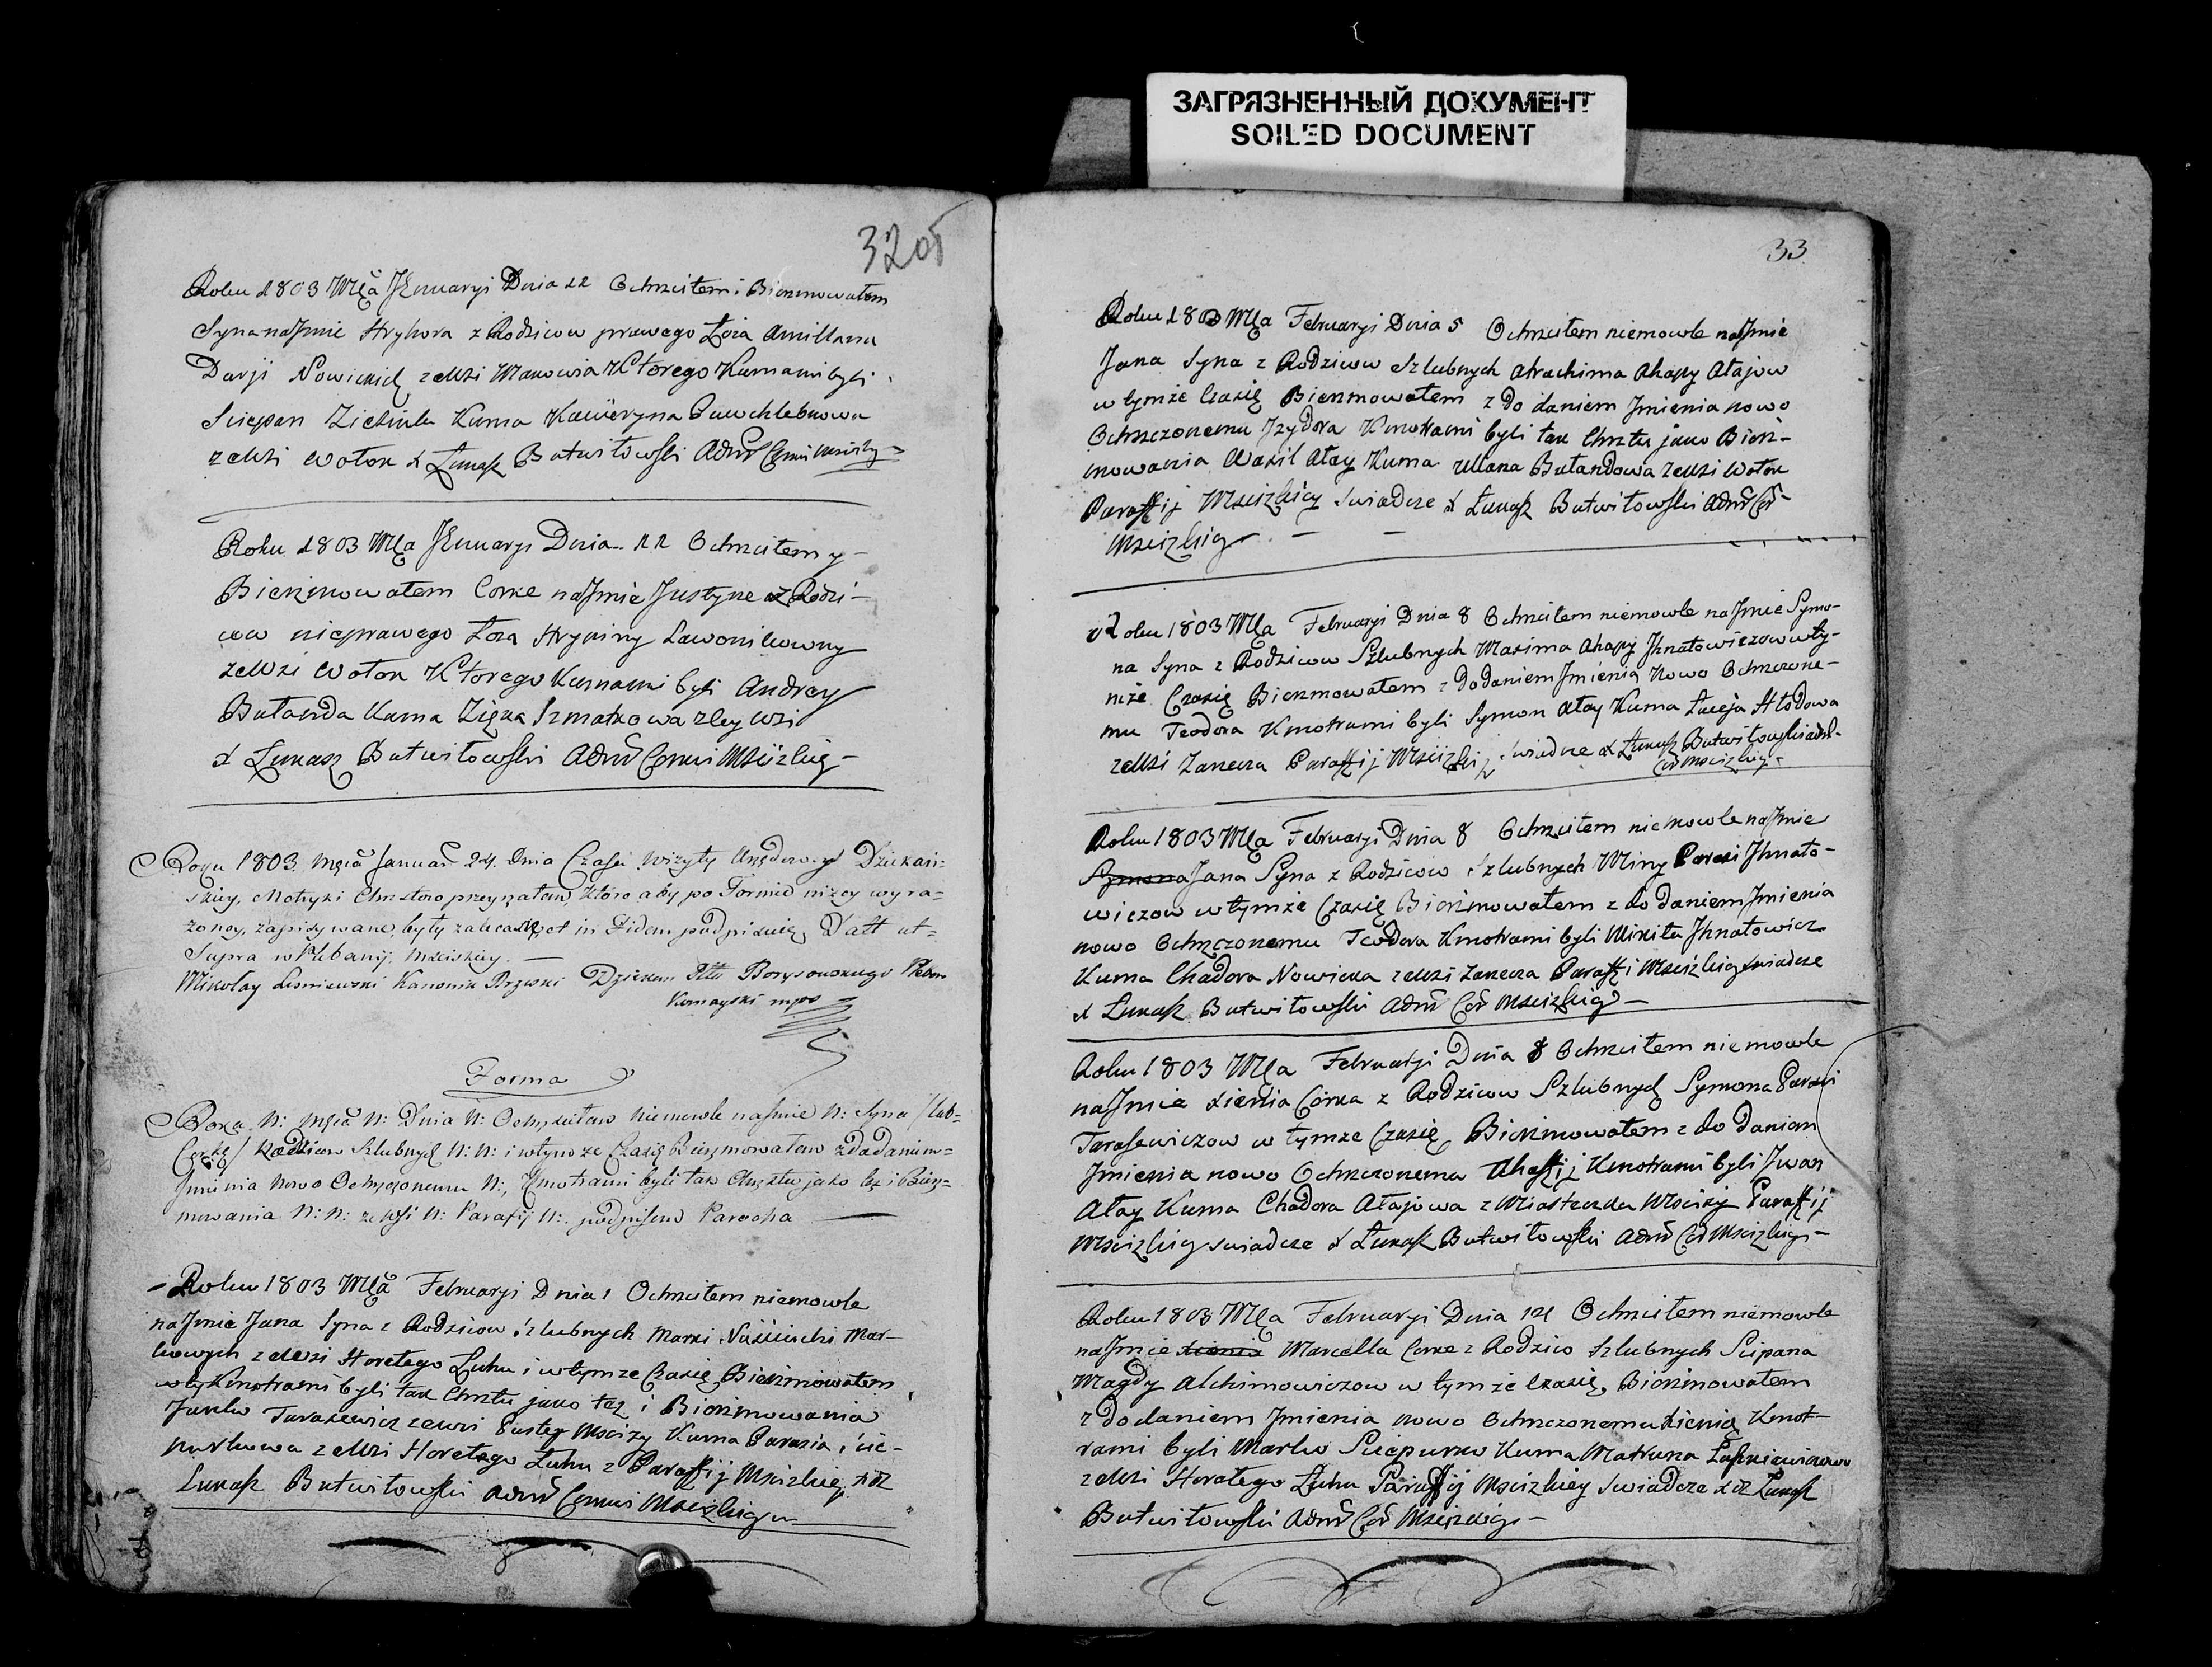 ЗАГРЯЗНЕННЫЙ ДОКУМЕНТ
SOILED DOCUMENT
32об
Roku 1803 Mca Jenuaryi Dnia 11 Ochrzciłem i Bierzmowałem
Syna na Jmie Hryhora z Rodzicow prawego Łoża Amillana
Daryi Nowickich z Wsi Makowia Ktorego Kumami byli
Sciepan Kuma Kateryna
z Wsi Wołok X Łukasz Butwiłowski Admr Cerkwi
Roku 1803 Mca Jenuaryi Dnia 11 Ochrzciłem y
Bierzmowałem Corke na Jmie Justyne z Rodzi-
cow nieprawego Łoza Hrypiny Lawonikowny
z Wsi Wołok Ktorego Kumami byli Andrey
Bułanda Kuma Zięka Szmatkowa z tey Wsi
X Łukasz Butwiłowski Admr Cerkwi Msciżkiey
Roku 1803 Męca Januar 24 Dnia Czasu Wizyty Urzędowey Dziekań-
skiey, Metryki Chrztow przeyrzałem, ktore aby po Formie niżey wyra-
żoney, zapisywane, były zalecam, et in Fidem podpisuię, Datt ut
Supra w Plebanij Msciskiey.
Mikołay Lesniewski Kanonik Brzeski Dziekan Ptu Borysowskiego Pleban
Komayski mpo
Forma
Roku N: Męca N: Dnia N: Ochrzciłem Niemowle na Jmie N: Syna / lub
Corkę / z Rodzicow Szlubnych N: N: i w tymże Czasię Bierzmowałem z dodaniem
Jmienia Nowo Ochrzczonemu N:, Kmotrami byli tak Chrztu jako też i Bierz=
mowania N: N: ze Wsi N: Parafij N: podpisem Parocha
Roku 1803 Mca Februaryi Dnia 1 Ochrzciłem niemowle
na Jmie Jana Syna z Rodzicow szlubnych Marki Mar-
kowych z Wsi Horełego Łuhu i w tymze Czasię Bierzmowałem
Kmotrami byli tak Chrztu jako też i Bierzmowania
Janko Tarasewicz z Wsi Pustey Msciży Kuma Parasia Scie-
purkowa z Wsi Horełego Łuhu z Paraffij Msciżkiey
Łukasz Butwiłowski Admr Cerkwi Msciżkiey
33
Roku 1803 Mca Februaryi Dnia 5 Ochrzciłem niemowle na Jmie
Jana Syna z Rodzicow Szlubnych Atrachima Ahapy Atajow
w tymże Czasię Bierzmowałem z do daniem Jmienia nowo
Ochrzczonemu Jzydora Kmotrami byli tak Chrztu jako Bierz-
mowania Wasil Atay Kuma Ullana Bułandowa z Wsi Wołok
Paraffij Msciżkiey swiadcze X Łukasz Butwiłowski Admr Cer
Msciżkiey
Roku 1803 Mca Februaryi Dnia 8 Ochrzciłem niemowle na Jmie Symo-
na Syna z Rodzicow Szlubnych Maxima Ahapy Jhnatowiczow w ty-
mże Czasię Bierzmowałem z dodaniem Jmienia Nowo Ochrzczone-
mu Teodora Kmotrami byli Symon Atay Kuma Łuceja Hłodowa
z Wsi Zarecza Paraffij Msciżkiey swiadcze X Łukasz Butwiłowski Admr
Cer Msciżkiey
Roku 1803 Mca Februaryi Dnia 8 Ochrzciłem niemowle na Jmie
Symona Jana Syna z Rodzicow Szlubnych Miny Paraxi Jhnato-
wiczow w tymże Czasię Bierzmowałem z do daniem Jmienia
nowo Ochrzczonemu Teodora Kmotrami byli Mikita Jhnatowicz
Kuma Chadora Nowicka z Wsi Zarecza Paraffi Msciżkiey swiadcze
X Łukasz Butwiłowski Admr Cer Msciżkiey
Roku 1803 Mca Februaryi Dnia 8 Ochrzciłem niemowle
na Jmie Xienia Corka z Rodzicow Szlubnych Symona Paraxi
Tarasewiczow w tymze Czasię Bierzmowałem z do daniem
Jmienia nowo Ochrzczonema Ahaffij Kmotrami byli Jwan
Atay Kuma Chadora Atajowa z Miasteczka Msciży Paraffij
Msciżkiey swiadcze X Łukasz Butwiłowski Admr Cer Msciżkiey
Roku 1803 Mca Februaryi Dnia 14 Ochrzciłem niemowle
na Jmie Xienia Marcella Corke z Rodzico Szlubnych Scipana
Magdy Alchimowiczow w tymże Czasię Bierzmowałem
z dodaniem Jmienia nowo Ochrzczonemu Xienia Kmot-
rami byli Marko Sciepurko Kuma Matruna
z Wsi Horełego Łuhu Paraffij Msciżkiey swiadcze X Łukasz
Butwiłowski Admr Cer Msciżkiey